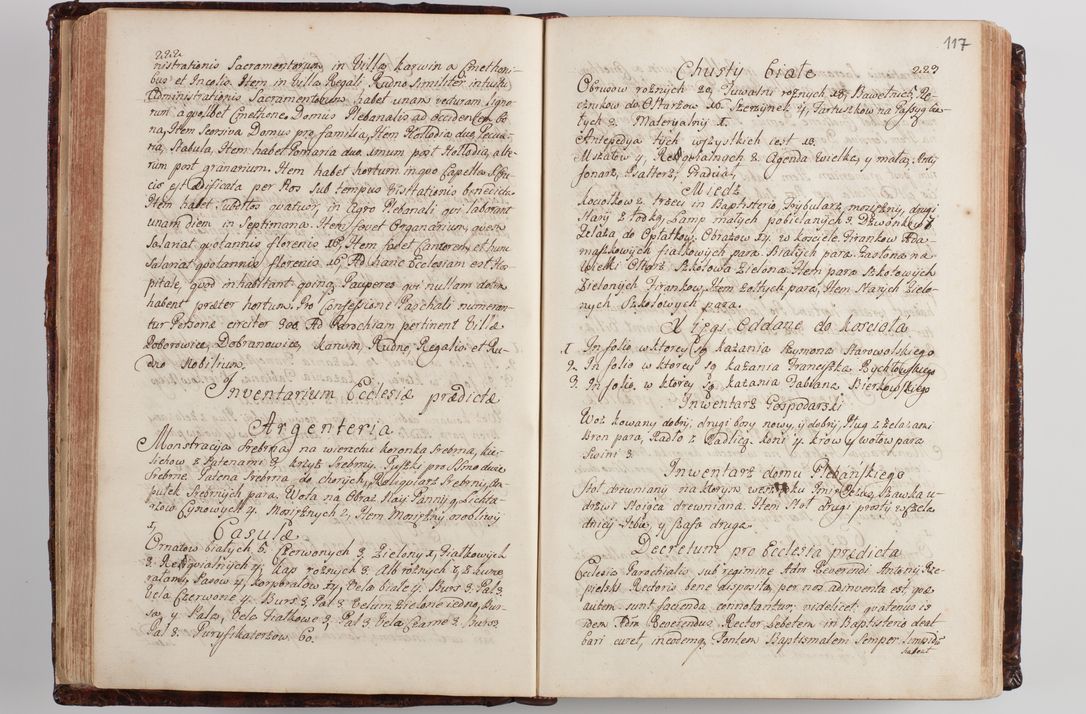 222
nistrationis Sacramentorum in Villa Karwin a Cmethoni-
bus et Incolis. Item in Villa Regali Rudno similiter intuitu
Administrationis Sacramentorum habet unam veduram Ligno-
rum a quolibet Cmethone. Domus Plebanalis ad occidentem bo-
na, Item Seorsiva Domus pro familia, Item Horrea duo, Pecua-
na, Stabula, Item habet Pomaria duo unum post Horrea, alte-
rum post granarium. Item habet hortum in quo Capella
est Ædificata per Nos sub tempus Visitationis benedicta
Item habet quatuor, in Agro Plebanali qui laborant
unam diem in Septimana. Item fovet Organarium, quem
Salariat quotannis florenis 16, Item fovet Cantorem et hunc
Salariat quotannis florenis 16, Ad hanc Ecclesiam est Hos-
pitale, quod inhabitant quinq Pauperes qui nullam dotem
habent præter hortum. Pro Confessione Paschali numeran-
tur Personæ circiter 300 Ad Parochiam pertinent Villæ
Poborowice, Dobranowice, Karwin, Rudno Regalis et Ru-
dno Nobilium.
Inventarium Ecclesiæ prædictæ
Argenteria
Monstracija Srebrna na wierzchu koronka srebrna, kie-
lichow z Patenami 3 krzyż Srebrny. Puszki pro SSmo dwie
Srebrne. Patena Srebrna do chorych, Reliquiarz Srebrny, Am-
pułek Srebrnych para, Wota na Obraz Nay: Panny 9, Lichta-
rzow Cynowych 4. Mosiężnych 2, Item Mosiężny osobliwy
1.
Casulæ
Ornatow białych 5. Czerwonych 3, Zielony 1, Fiałkowych
3. Requialnych 4, Kap rożnych 3. Alb rożnych 7, z hume-
ralami, Pasow 4, Korporałow 14, Vela białe 4. Burs 3. Pal 3.
Vela Czerwone 4. Burs 3. Pal 3 Velum Zielone iedno, Bur-
sa, y Pala, Vela Fiałkowe 3. Pal 3. Vela Czarne 3. Bursy
Pal 3. Puryfikaterzow 60.
117
223
Chusty białe
Obrusow rożnych 20, Tuwalni rożnych 18, Bawełnic, Rę-
cznikow do Ołtarzow 16. Szerzynek 4, Fartuszkow na Passyę Ca-
łych 3. Materyalny 1.
Antepedya tych wszystkich iest 10.
Mszałow 4, Requialnych 3. Agenda wielka, y mała, Anty-
fonarz, Psałterz, Graduał,
Miedź
Kociołkow 2 trzeci in Baptisterio, Trybularz, mosiężny, drugi
stary z łodką, Lamp małych pobielanych 3. Dzwonkow 6
Żelaza do Opłatkow. Obrazow 14. w kosciele. Firankow Ada-
maszkowych fiałkowych para. Białych para, Zasłona na
wielki Ołtarz Szkotowa Zielona. Item para Szkotowych
Zielonych Firankow, Item żołtych para, Item Starych Zielo-
nych Szkotowych para.
Xięgi Oddane do koscioła
1 In folio w ktorey są kazania Szymona Starowolskiego
2. In folio w ktorey są kazania Franciszka Rychłowskiego
3. In folio, w ktorey są kazania Fabiana Bierkowskiego
Inwentarz Gospodarski
Woz kowany dobry, drugi bosy nowy, y dobry, Pług z żelazami
Bron para, Radło z Radlicą. Koni 4. krow 4 wołow para
Swini 3.
Inwentarz domu Plebańskiego
Stoł drewniany na ktorym Ławka u-
drzwi stoiąca drewniana. Item Stoł drugi prosty w Czela-
dney Izbie, y Szafa druga
Decretum pro Ecclesia prædicta
Ecclesia Parochialis sub regimine Adm Reverendi Antonij Rze-
pielski Rectoris bene disposita, per nos adinventa est, quæ
autem sunt facienda connotantur; videlicet quatenus is
idem Adm Reverendus Rector Lebetem in Baptisterio dealbari
curet, in eodemq, Fontem Baptismalem Semper limpidum
habeat